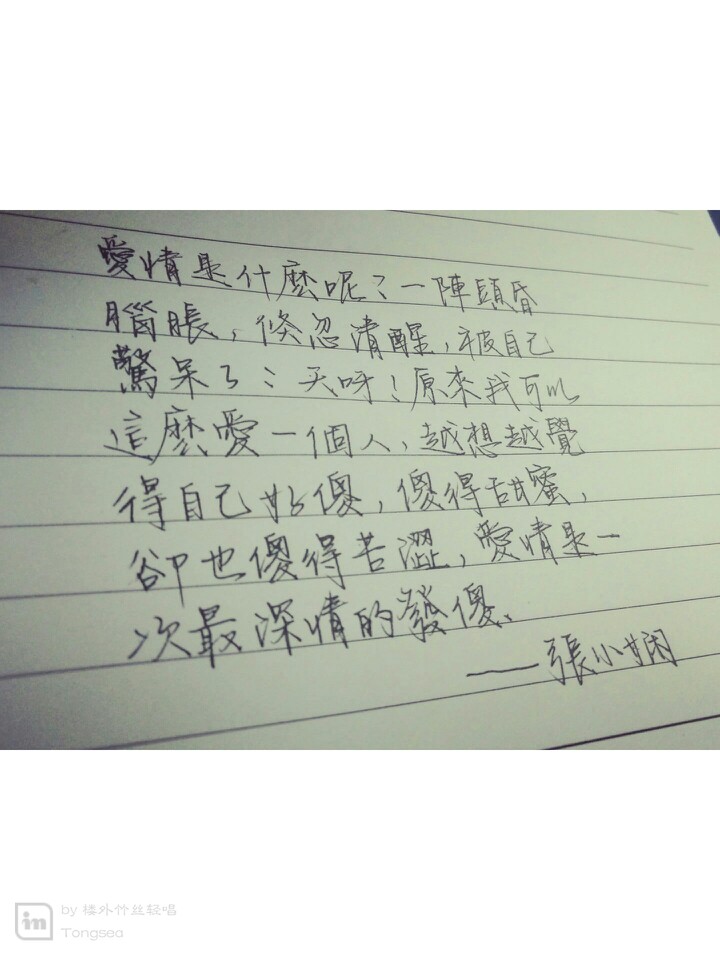 愛情是什麼呢？一陣頭昏
腦脹，倏忽清醒，被自己
驚呆了：天呀！原來我可以
這麼愛一個人，越想越覺
得自己好傻，傻得甜蜜，
卻也傻得苦澀，愛情是一
次最深情的發傻、
——張小嫻
in by 楼外竹丝轻唱
Tongsea